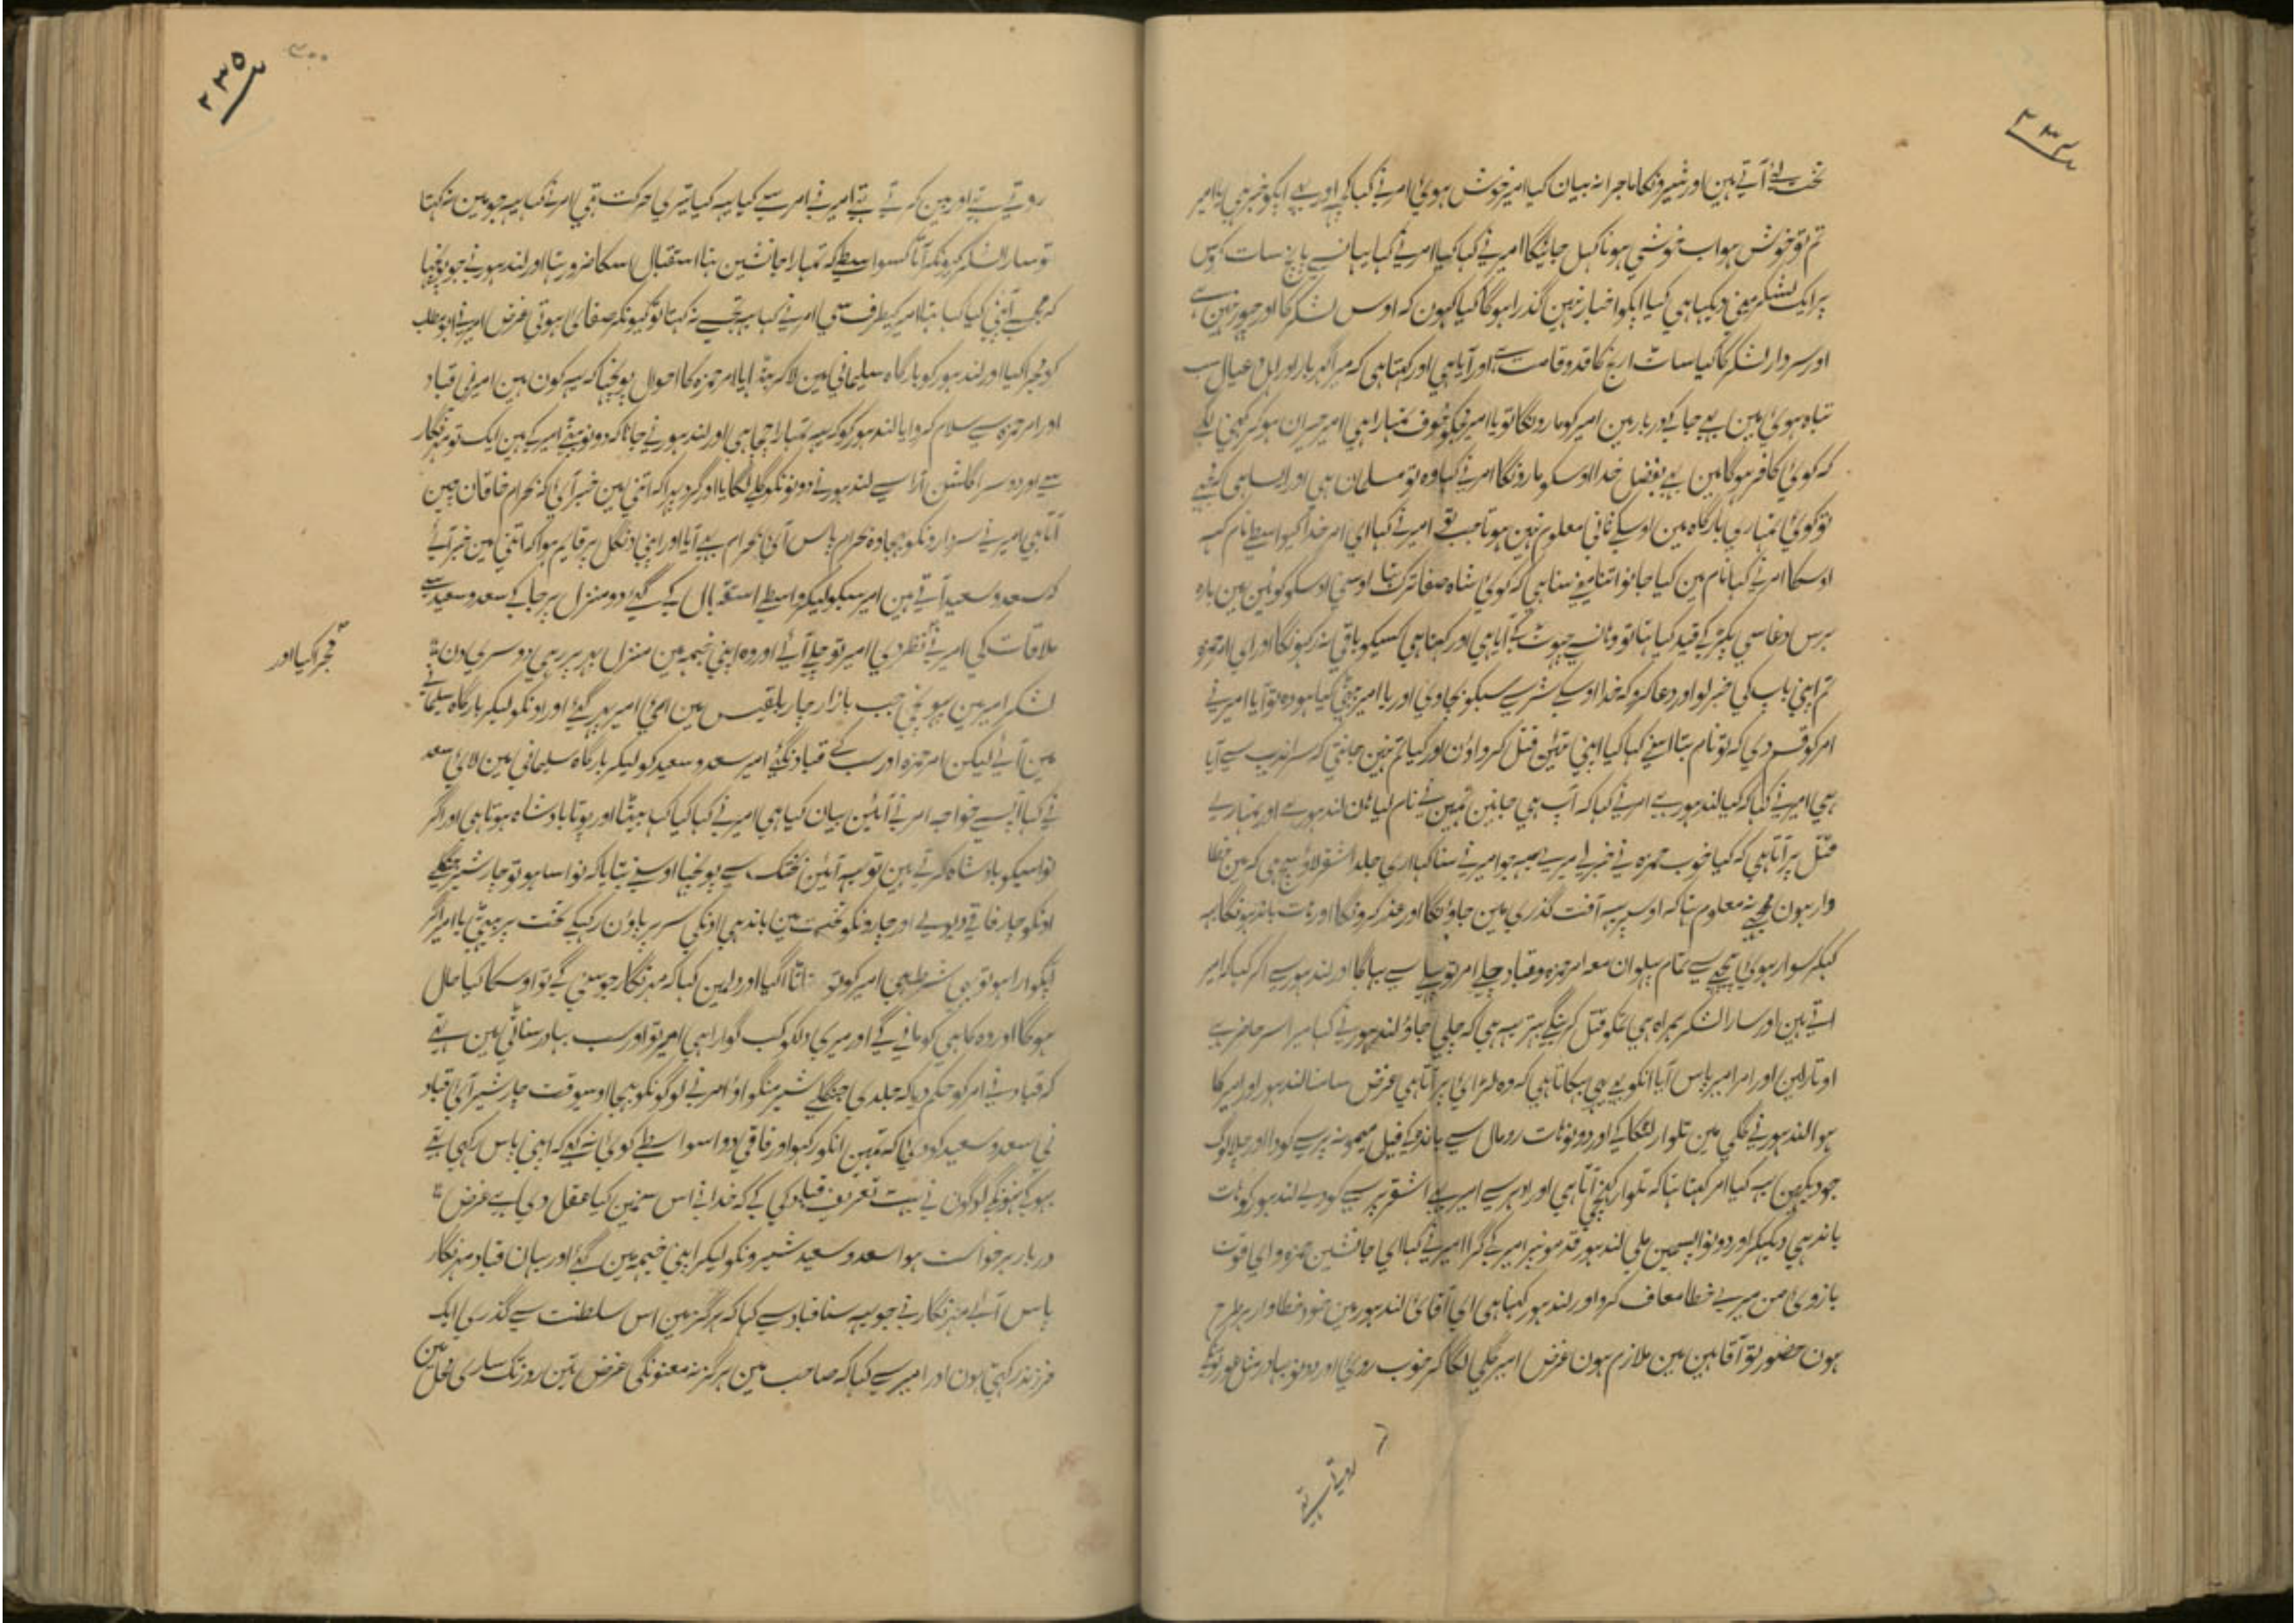 ۲۳۴
تخت لئے آتے ہین اور شیرونکا ماجرا نہ بیان کیا امیر خوش ہوئی امر نے کہا کچہ اور بے اپکو خبر ہی یا امیر
تم تو خوش ہو اب خوشی ہونا کہل جائیگا امیر نے کہا کیا امر نے کہا یہان سے پانچ سات کوس
پر ایک لشکر مینی دیکہا ہی کیا اپکو اخبار نہین گذرا ہوگا کیا کہون کہ اوس لشکر کا اور چہور نہین ہے
اور سردار لشکر کا کیا سات ارج کا قد و قامت ہے اور آیا ہی اور کہتا ہی کہ میرا گہر بار اور اہل و عیال سب
تباہ ہوئی ہین بے جا کے دربار مین امیر کو مارونگا تو یا امیر مجکو خوف تمہارا ہی امیر حیران ہوکر کہنی لگے
کہ کوئی کافر ہوگا مین بے بفضل خدا اوسکو مارونگا امر نے کہا وہ تو مسلمان ہی اور ایسا ہی کہ مجہے
تو کوئی تمہاری بارگاہ مین اوسکے ثانی معلوم نہین ہوتا جب تو امیر نے کہا ای امر خدا کیواسطے نام کہہ
اوسکا امر نے کہا نام مین کیا جانو اتنا مینے سنا ہی کہ کوئی شاہ صفا ترک تہا اوسی اوسکو کوئین مین بارہ
برس دغا سی پکڑ کے قید کیا تہا تو وہان سے چہوٹ کے آیا ہی اور کہتا ہی کسیکو باقی نہ رکہونگا اور ای امر حمزہ
تم اپنی باپ کی خبر لو اور دعا کرو کہ خدا اوسکے شر سے سبکو بچاوی اور یا امیر جیتے کیا ہو وہ تو آیا امیر نے
امر کو قسم دی کہ تو نام بتا اسنے کہا کیا اپنی تئین قتل کرواؤن اور کیا تم نہین جانتی کہ سراندیب سے آیا
ہی امیر نے کہا کہ کیا لندہور ہے امر نے کہا کہ آپ ہی جانین تمہین نے نام لیا ہان لندہور ہے اور تمہارے
قتل پر آتا ہی کہ کیا خوب حمزہ نے خبر لے میرے یہہ جو امیر نے سنا کہا اری جلد اشقر لاؤ سچ ہی کہ مین خطا
وار ہون مجہے نہ معلوم تہا کہ اوسپر یہہ آفت گذری مین جاؤنگا اور عذر کرونگا اور ہات باندہونگا یہہ
کہکر سوار ہوئی پیچہے سے تمام پہلوان معہ امر حمزہ و قباد چلے امر تو پہلے سے بہاگا اور لندہور سے اکر کہا کہ امیر
اتے ہین اور سارا لشکر ہمراہ ہی تمکو قتل کرینگے بہتر یہہ ہی کہ چلے جاؤ لندہور نے کہا میرا سر حاضر ہے
اوتارلین اور امر امیر پاس آیا انکو بے یہی بہکاتا ہی کہ وہ لڑائی پر آتا ہی غرض سامنا لندہور اور امیر کا
ہوا لندہور نے گلی مین تلوار لٹکا کے اور دونو ہات رومال سے باندہ کے فیل میمونہ پر سے کودا اور چلا لوگ
جو دیکہین یہہ کیا امر کہتا تہا کہ تلوار کہینچی آتا ہی اور ادہر سے امیر بے اشقر پر سے کودے لندہور کو ہات
باندہی دیکہکر اور دونو ایسمین ملی لندہور قدمونپر امیر کے گرا امیر نے کہا ای جانشین حمزہ و ای قوت
بازوی من میرے خطا معاف کرو اور لندہور کہتا ہی ای آقائی لندہور مین خود خطاوار ہر طرح
ہون حضور تو آقا ہین مین ملازم ہون غرض امیر گلی لگا کر خوب روئی اور دونو بہادر مثل عورتونکے
روتے تہے
۲۳۵
۳۰۰
روتے تہے اور مین کرتے تہے امیر نے امر سے کہا یہہ کیا تیری حرکت تہی امر نے کہا یہہ جو مین نہ کہتا
تو سارا لشکر کیونکر آتا کسواسطے کہ تمہارا جانشین تہا استقبال اسکا ضرور تہا اور لندہور نے جو پوچہا
کہ مجہسے آپنی کیا کہا تہا امیر کیطرف سی امر نے کہا یہہ تجہسے نہ کہتا تو کیونکر صفائی ہوتی غرض امیر نے
کو مجرا کیا اور لندہور کو بارگاہ سلیمانی مین لاکر بٹہایا امر حمزہ کا احوال پوچہا کہ یہہ کون ہین امیر نی قباد
اور امر حمزہ سے سلام کروایا لندہور کو کہ یہہ تمہارا چچا ہی اور لندہور نے جانا کہ دونو بیٹے امیر کے ہین ایک تو مہرنگار
سے اور دوسرا گلشن آرا سے لندہور نے دونونکو گلے لگایا اور گرد پہرا کہ اتنی مین خبر آئی کہ بحرام خاقان چین
آتا ہی امیر نے سردارونکو بہیجا وہ بحرام پاس آئی بحرام بے آیا اور اپنی دنگل پر قایم ہوا کہ اتنی مین خبر آئے
کہ سعد و سعید آتے ہین امیر سبکو لیکر واسطے استقبال کے گئے دو منزل پر جا کے سعد و سعید سے
ملاقات کی امیر نے نظر دی امیر تو چلے آئے اور وہ اپنی خیمہ مین منزل پر رہی دوسری دن
مجرا کیا اور
لشکر امیر مین پہونچی جب بازار چار بلقیس مین ائی امیر پہر گئے اور اونکو لیکر بارگاہ سلیمانے
مین آئے لیکن امر حمزہ اور سب کے قباد نگئے امیر سعد و سعید کو لیکر بارگاہ سلیمانی مین لائی سعد
نے کہا آپسے خواجہ امر نے آئین بیان کیا ہی امیر نے کہا کیا کہا بیٹا اور پوتا بادشاہ ہوتا ہی اور اگر
نواسیکو بادشاہ کرتے ہین تو یہہ آئین بختک سے پوچہا اوسنے بتایا کہ نواسا ہو تو چار شیر جنگلے
اونکو چار فاقے دیوے اور چارونکو تخت مین باندہی اونکی سر پر پاؤن رکہکے تخت پر بیٹہے یا امیر اگر
اپکو گوارا ہو تو یہی شرط ہی امیر کو تو سناٹا آگیا اور دلمین کہا کہ مہرنگار جو سنی گے تو اوسکا کیا حال
ہوگا اور وہ کاہی کو مانے گے اور میری دلکو کب گوارا ہی امیر تو اور سب بہادر سناٹی مین تہے
کہ قباد نے امر کو حکم دیا کہ جلدی جنگلے شیر منگواؤ امر نے لوگونکو بہیجا اوسیوقت چار شیر آئی قباد
نی سعد و سعید کو دئی کہ تمہین انکو رکہو اور فاقی دو اسواسطے کوئی نہ کہے کہ اپنی پاس رکہی تہے
بہوکے نہونگے لوگون نے بہت تعریف قباد کی کے کہ خدا نے اس سنمین کیا عقل دی ہے غرض
دربار برخواست ہوا سعد و سعید شیرونکو لیکر اپنی خیمہ مین گئے اور یہان قباد مہرنگار
پاس آئے مہرنگار نے جو یہہ سنا قباد سے کہا کہ ہرگز مین اس سلطنت سے گذری ایک
فرزند رکہتی ہون اور امیر سے کہا کہ صاحب مین ہرگز نہ معنونگی غرض تین روز تک ساری محل مین